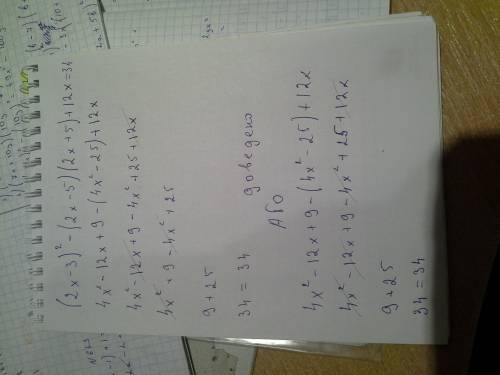 (2x-3)² - (2x-5)(2x+5)+12x=34
4x²-12x+9-(4x²-25)+12x
4x²-12x+9-4x²+25+12x
4x²+9-4x²+25
9+25
34=34 доведено
Або
4x²-12x+9-(4x²-25)+12x
4x²-12x+9-4x²+25+12x
9+25
34=34